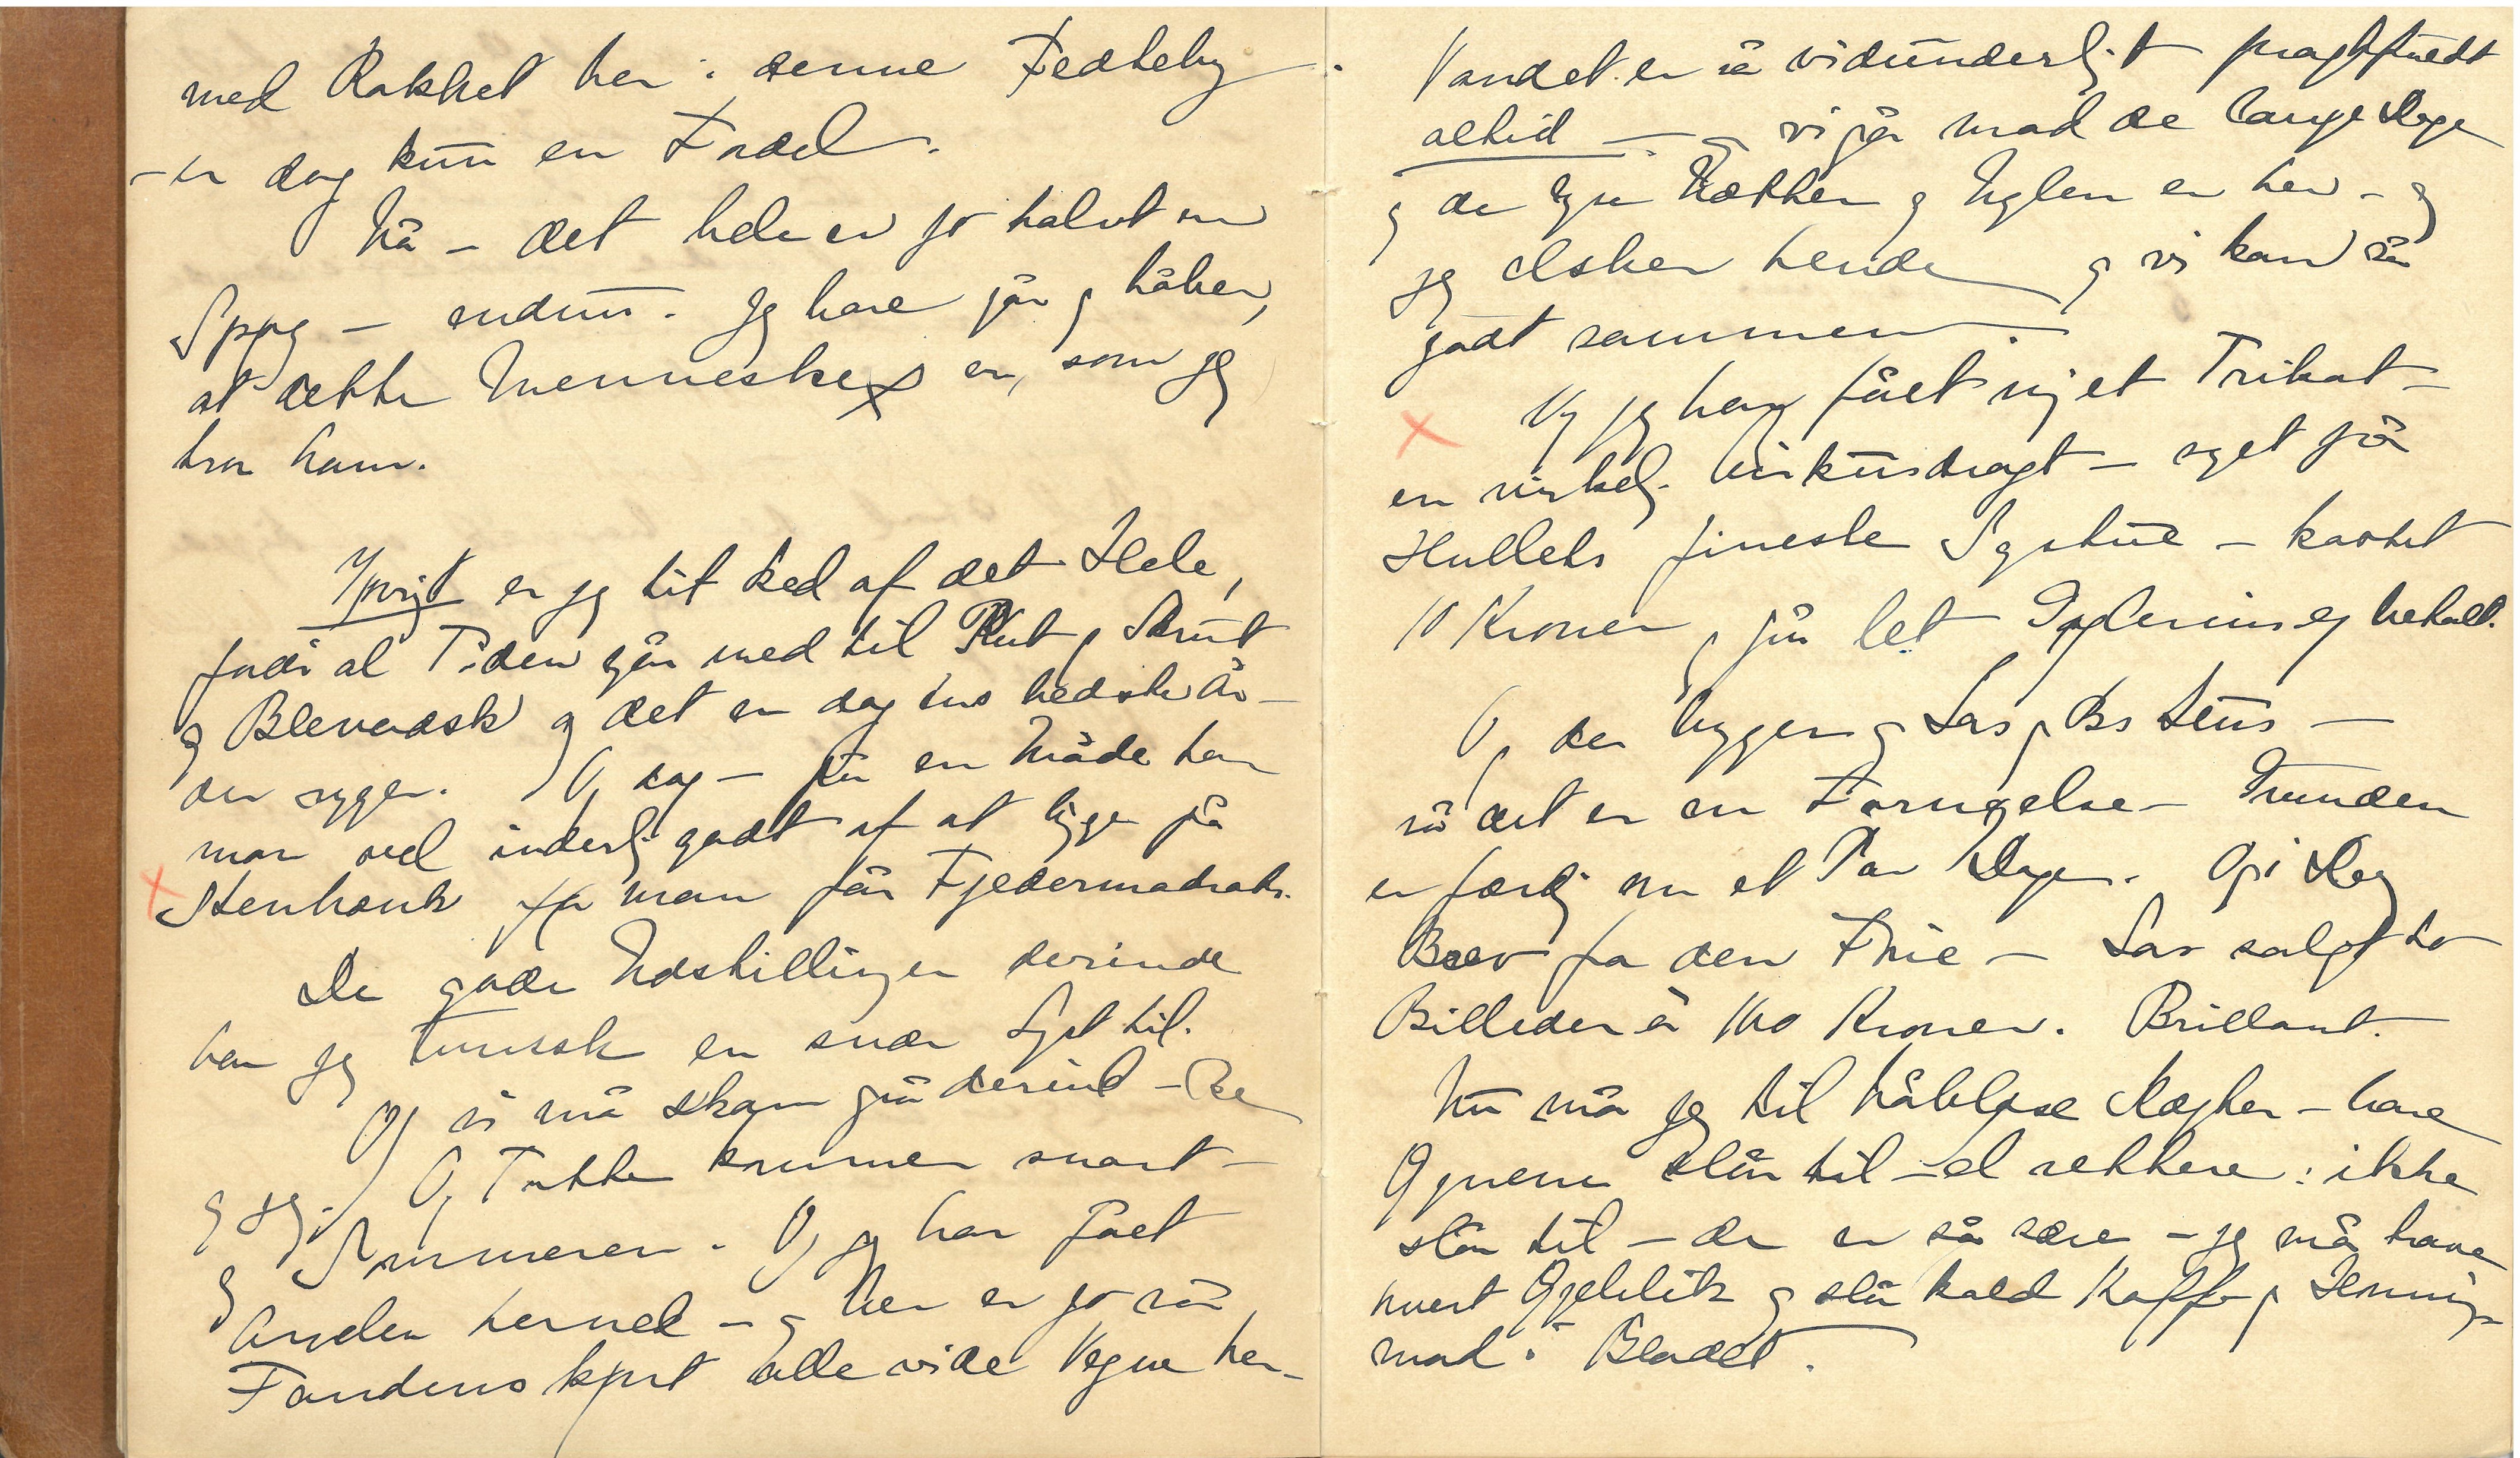 med Rakket her i denne Fedteby
– er dog kun en Fordel.
Nå – det hele er jo halvt en
Spøg – endnu. Jeg bare går og håber,
at dette Menneske er, som jeg
tror ham.
Iøvrigt er jeg tit ked af det Hele,
fordi al Tiden går med til Rut og Strut
og Blevadsk og det er dog ens bedste År –
der ryger. Og dog – på en Måde har
man vel inderlig godt af at ligge på
Stenbænk før man får Fjedermadrats.
De gode Udstillinger derinde
har jeg temmelig en svær Lyst til.
Og vi må skam gå derind – Be
og jeg. Og Tutte kommer snart –
og Sommeren. Og jeg har fået
Anden herned – og her er jo så
Fandens kønt alle vide Vegne her –
Vandet er så vidunderligt pragtfuldt
altid – og vi går mod de lange Dage
og de lyse Nætter og Uglen er her – og
jeg elsker hende og vi kan så
godt sammen.
Og jeg har fået nyet Trikot –
en virkelig Cirkusdragt – syet på
Hullets fineste Systue – kostet
10 Kroner og fin let
Og der bygges og Las og Bs Hus –
så det er en Fornøjelse – Grunden
er færdig om et Par Dage. Og i Dag
Brev fra den Frie – Las solgt to
Billeder à 100 Kroner. Brillant.
Nu må jeg til håbløse Nægter – bare
Øjnene slår til – el rettere: ikke
slår til – de er så sære – jeg må hvert
hvert Øjeblik og slå kold Kaffe og Honning
mod i Bladet.